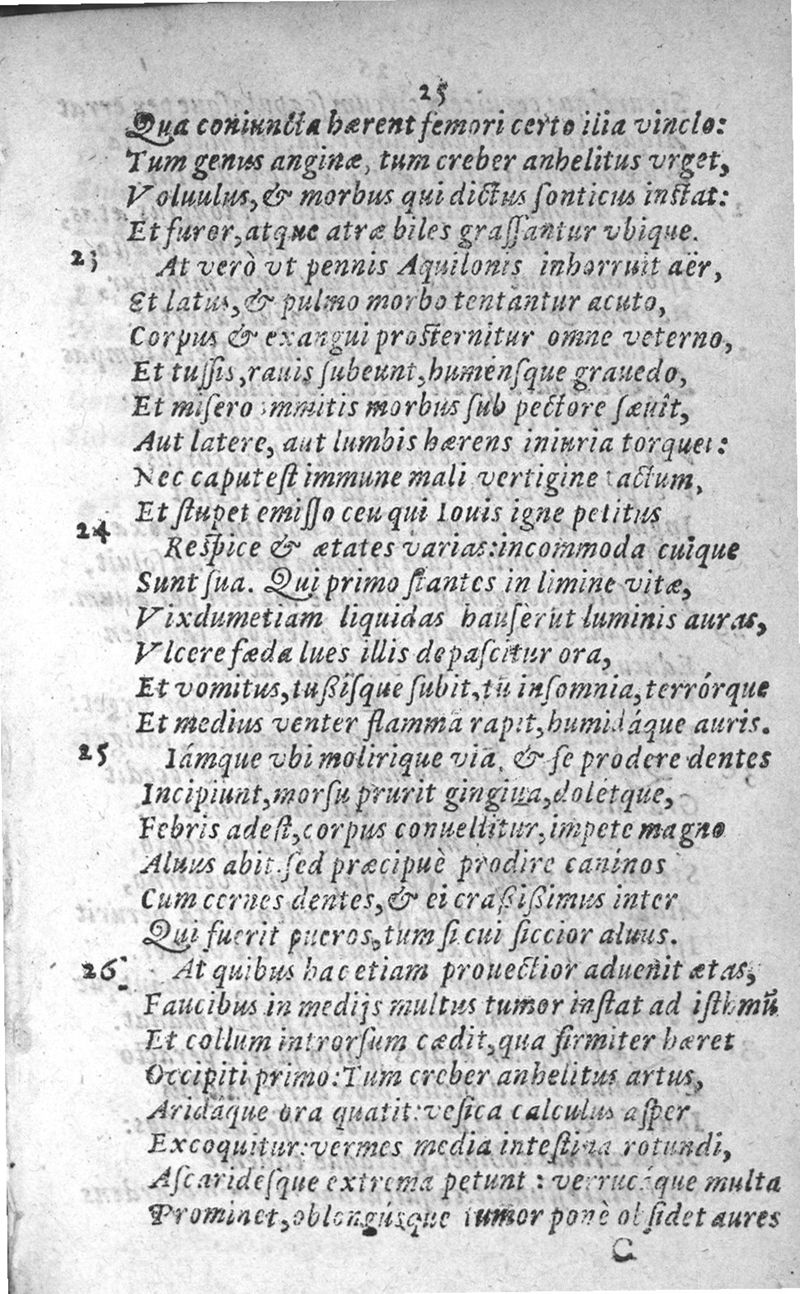 25
Qua coniuncta hærent femori certo ilia vinclo:
Tum genus anginæ, tum creber anhelitus vrget,
Voluulus, & morbus qui dictus ſonticus inſtat:
Et furor, atque atræ biles graſſantur vbique.
23 At verò vt pennis Aquilonis inhorruit aër,
Et latus, & pulmo morbo tentantur acuto,
Corpus & exangui proſternitur omne veterno,
Et tuſſis, rauis ſubeunt, huménſque grauedo,
Et miſero immitis morbus ſub pectore ſæuît,
Aut latere, aut lumbis hærens iniuria torquet:
Nec caput eſt immune mali vertigine tactum,
Et ſtupet emiſſo ceu qui Iouis igne petitus
24 Reſpice & ætates varias: incommoda cuique
Sunt ſua. Qui primo ſtantes in limine vitæ,
Vixdum etiam liquidas hauſerūt luminis auras,
Vlcere fæda lues illis depaſcitur ora,
Et vomitus, tußiſque ſubit, tū inſomnia, terrórque
Et medius venter flammā rapit, humidáque auris.
25 Iámque vbi molirique viā, & ſe prodere dentes
Incipiunt, morſu prurit gingiua, doletque,
Febris adeſt, corpus conuellitur, impete magno
Aluus abit. ſed præcipuè prodire caninos
Cum cernes dentes, & ei craßißimus inter
Qui fuerit pueros, tum ſi cui ſiccior aluus.
26 At quibus hac etiam prouectior aduenit ætas,
Faucibus in medijs multus tumor inſtat ad iſthmū
Et collum introrſum cædit, qua firmiter hæret
Occipiti primo: Tum creber anhelitus artus,
Aridáque ora quatit: veſica calculus aſper
Excoquitur: vermes media inteſtina rotundi,
Aſcaridéſque extrema petunt: verrucáque multa
Prominet, oblongúſque tumor ponè obſidet aures
C